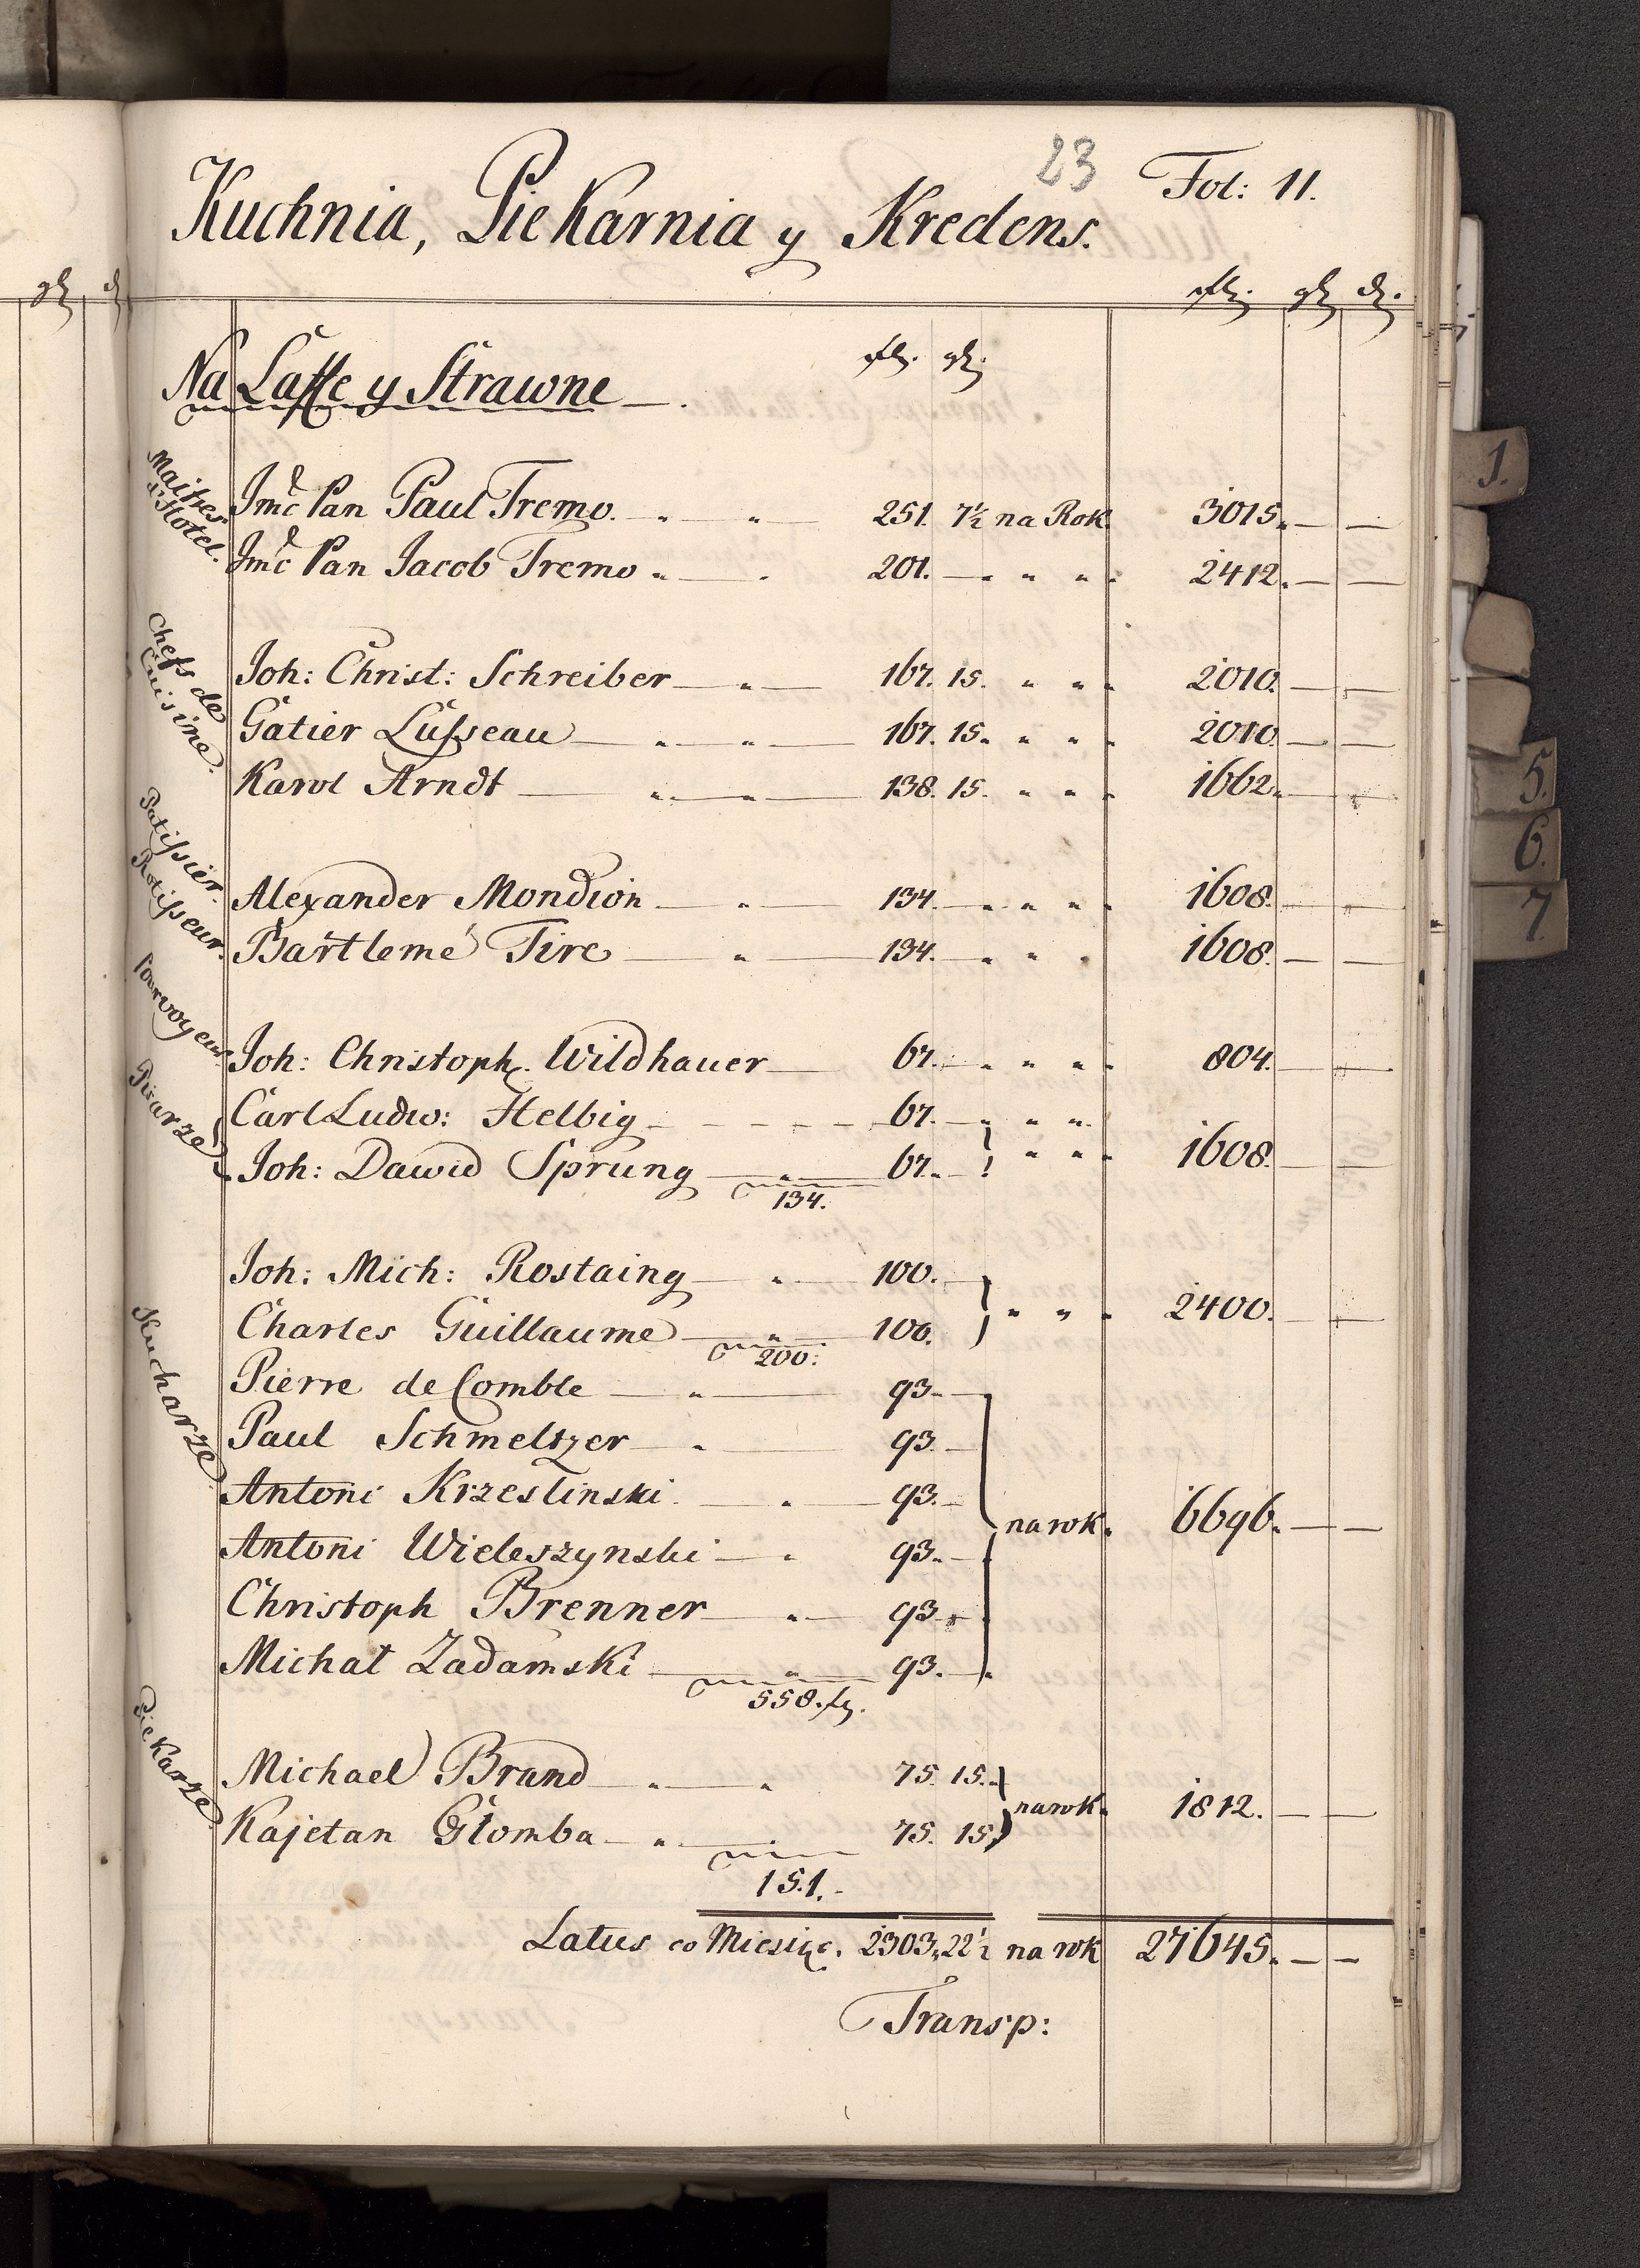 23 Fol: 11.
Kuchnia, Piekarnia y Kredens.
fl: gr dr.
gr dr
Na Laffe y Strawne fl. gr.
Maitres d'Hotel.
Jmć Pan Paul Tremo. 251. 7½ na Rok 3015. — —
Jmć Pan Jacob Tremo 201. — " " " 2412. — —
Chefs de Cuisine.
Joh: Christ: Schreiber 167. 15. " " " 2010. — —
Gatier Lusseau 167. 15. " " " 2010. — —
Karol Arndt 138. 15. " " " 1662. — —
Patissier. Alexander Mondion 134. — " " " 1608. — —
Rotisseur. Bartlemé Tire 134. — " " " 1608. — —
Pourvoyeur Joh: Christoph. Wildhauer 67. — " " " 804. — —
Pisarze
Carl Ludw: Helbig 67. — " " "
Joh: Dawid Sprung 67. — " " " 1608. — —
134.
Kucharze
Joh: Mich: Rostaing 100. —
Charles Guillaume 100. " " " 2400. — —
200:
Pierre de Comble 93. —
Paul Schmeltzer 93. —
Antoni Krzeslinski 93. —
Antoni Wieleszynski 93. — na rok. 6696. — —
Christoph Brenner 93. —
Michał Zadamski 93. —
558. fl.
Piekarze
Michael Brand 75. 15.
Kajetan Głomba 75. 15. na rok. 1812. — —
151.
Latus co Miesiąc. 2303. 22½ na rok 27645. — —
Transp:
1.
5.
6.
7.